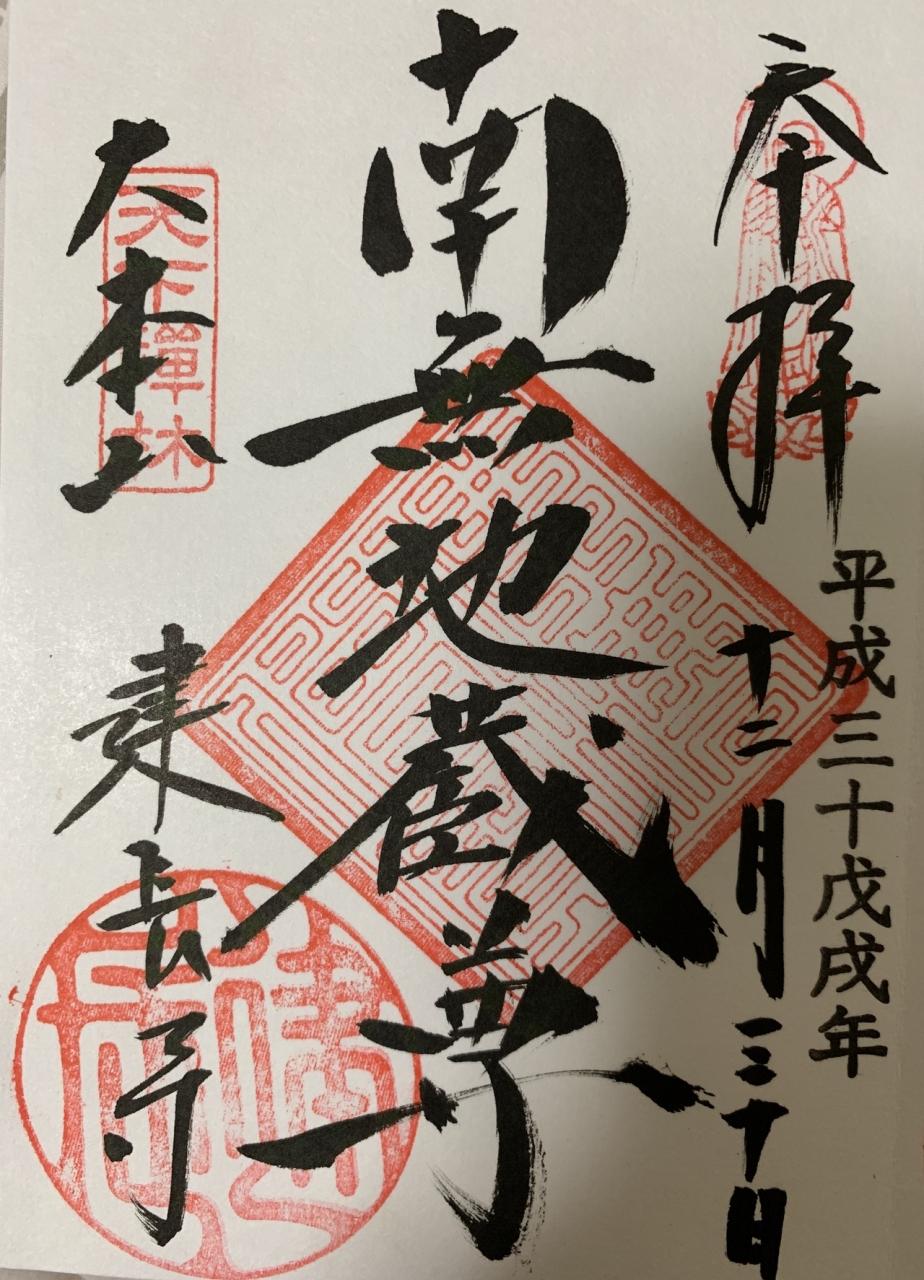 奉拝
平成三十戊戌年
十二月三十日
南無地蔵尊
天下禅林
大本山
建長寺